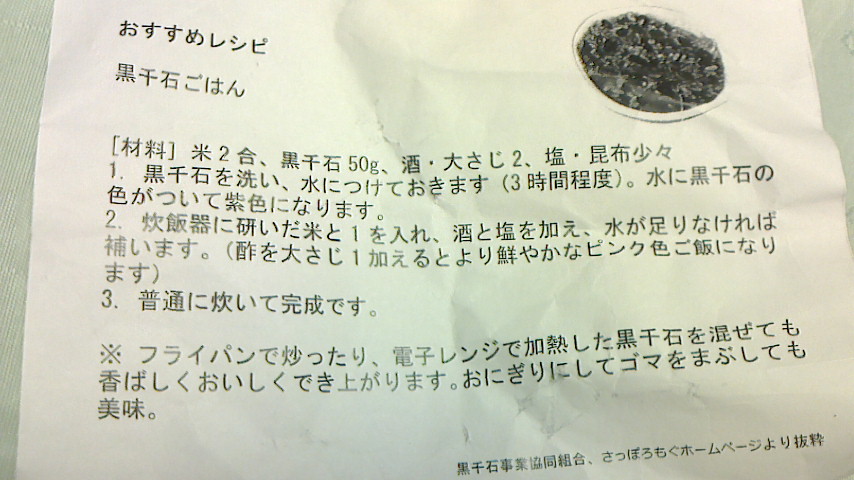 おすすめレシピ
黒千石ごはん
[材料] 米2合、黒千石50g、酒・大さじ2、塩・昆布少々
1. 黒千石を洗い、水につけておきます(3時間程度)。水に黒千石の
色がついて紫色になります。
2. 炊飯器に研いだ米と1を入れ、酒と塩を加え、水が足りなければ
補います。(酢を大さじ1加えるとより鮮やかなピンク色ご飯になり
ます)
3. 普通に炊いて完成です。
※ フライパンで炒ったり、電子レンジで加熱した黒千石を混ぜても
香ばしくおいしくでき上がります。おにぎりにしてゴマをまぶしても
美味。
黒千石事業協同組合、さっぽろもぐホームページより抜粋